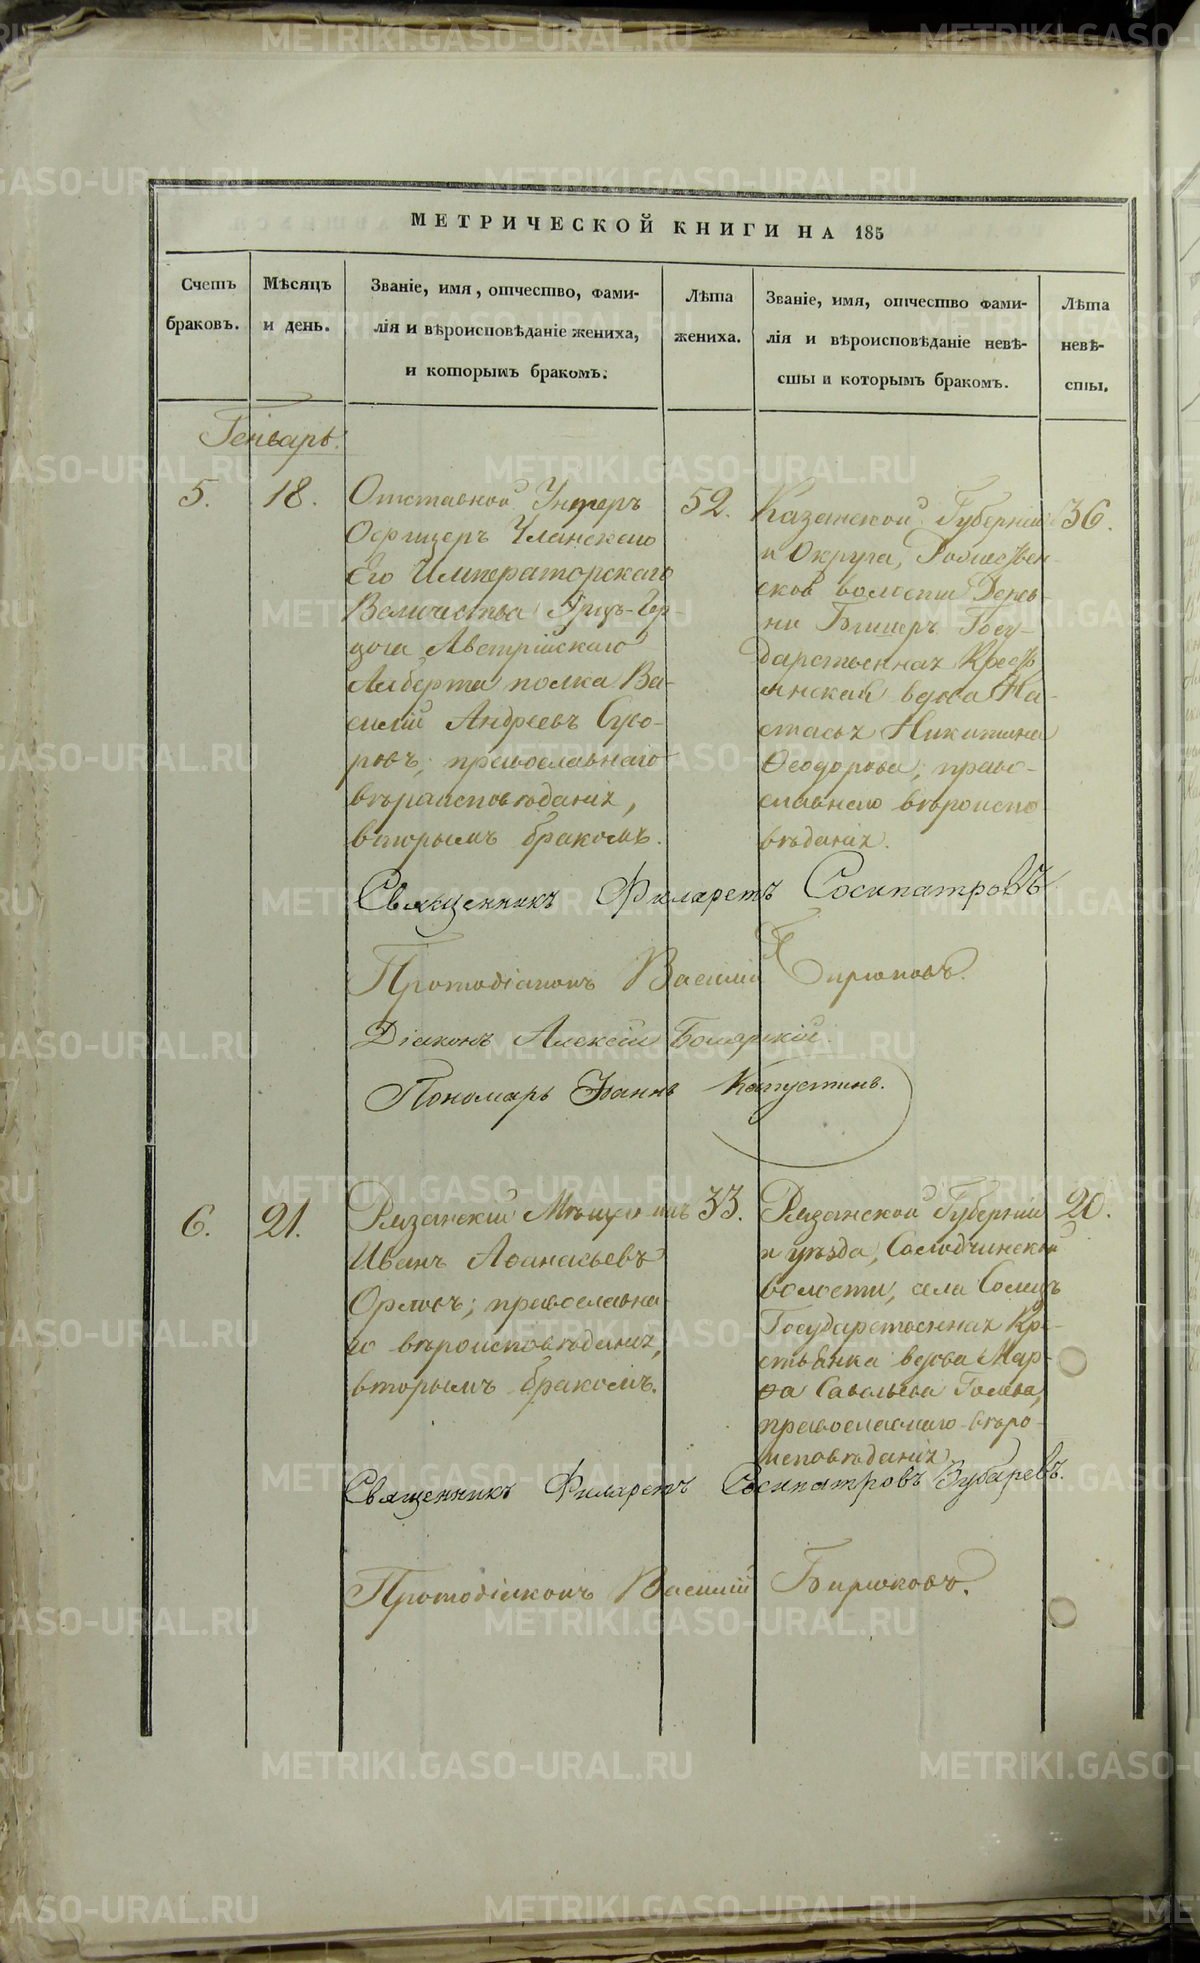 МЕТРИЧЕСКОЙ КНИГИ НА 185
Счетъ
браковъ.
Мѣсяцъ
и день.
Званіе, имя, отчество, фами-
лія и вѣроисповѣданіе жениха,
и которымъ бракомъ.
Лѣта
жениха.
Званіе, имя, отчество фами-
лія и вѣроисповѣданіе невѣ-
сты и которымъ бракомъ.
Лѣта
невѣ-
сты.
Генварь.
5.
18.
Отставной Унтеръ
Офицеръ Уланскаго
Его Императорскаго
Величества Эрцъ-Гер-
цога Австрійскаго
Алберта полка Ва-
силій Андреевъ Суво-
ровъ; православнаго
вѣраисповѣданія,
вторымъ бракомъ.
52.
Казанской Губерніи
и Округа, Рождествен-
ской волости Дерев-
ни Государственная Кресть
янская вдова На-
стасья Никитина
Ѳеодорова; право-
славнаго вѣроиспо-
вѣданія.
36.
Священникъ Филаретъ Сосипатровъ
Протодіаконъ Василій Бирюковъ
Діаконъ Алексѣй Боярскій.
Пономарь Іоаннъ Капустинъ.
6.
21.
Рязанскій Мѣщанинъ
Иванъ Аѳанасьевъ
Орловъ; православна-
го вѣроисповѣданія,
вторымъ бракомъ.
33.
Рязанской Губерніи
и уѣзда, Солодчинской
волости, села
Государственная Кре-
стьянка вдова Мар-
ѳа Савельева
православнаго вѣро-
исповѣданія
20.
Священникъ Филаретъ Сосипатровъ Зубаревъ.
Протодіаконъ Василій Бирюковъ.
METRIKI.GASO-URAL.RU